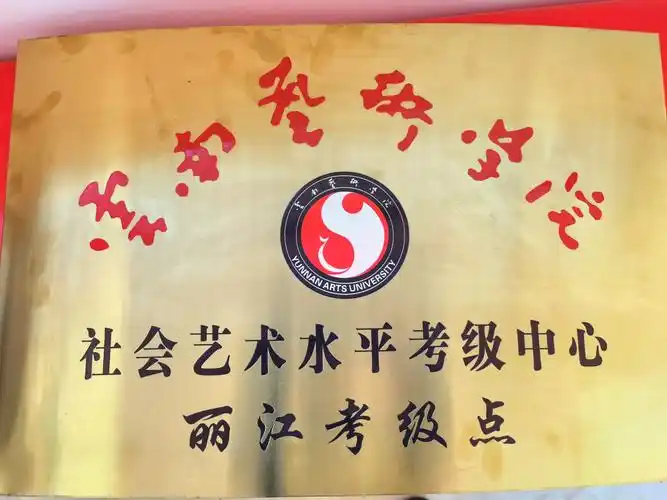 云南艺术学院
云南艺术学院
YUNNAN ARTS UNIVERSITY
社会艺术水平考级中心
丽江考级点